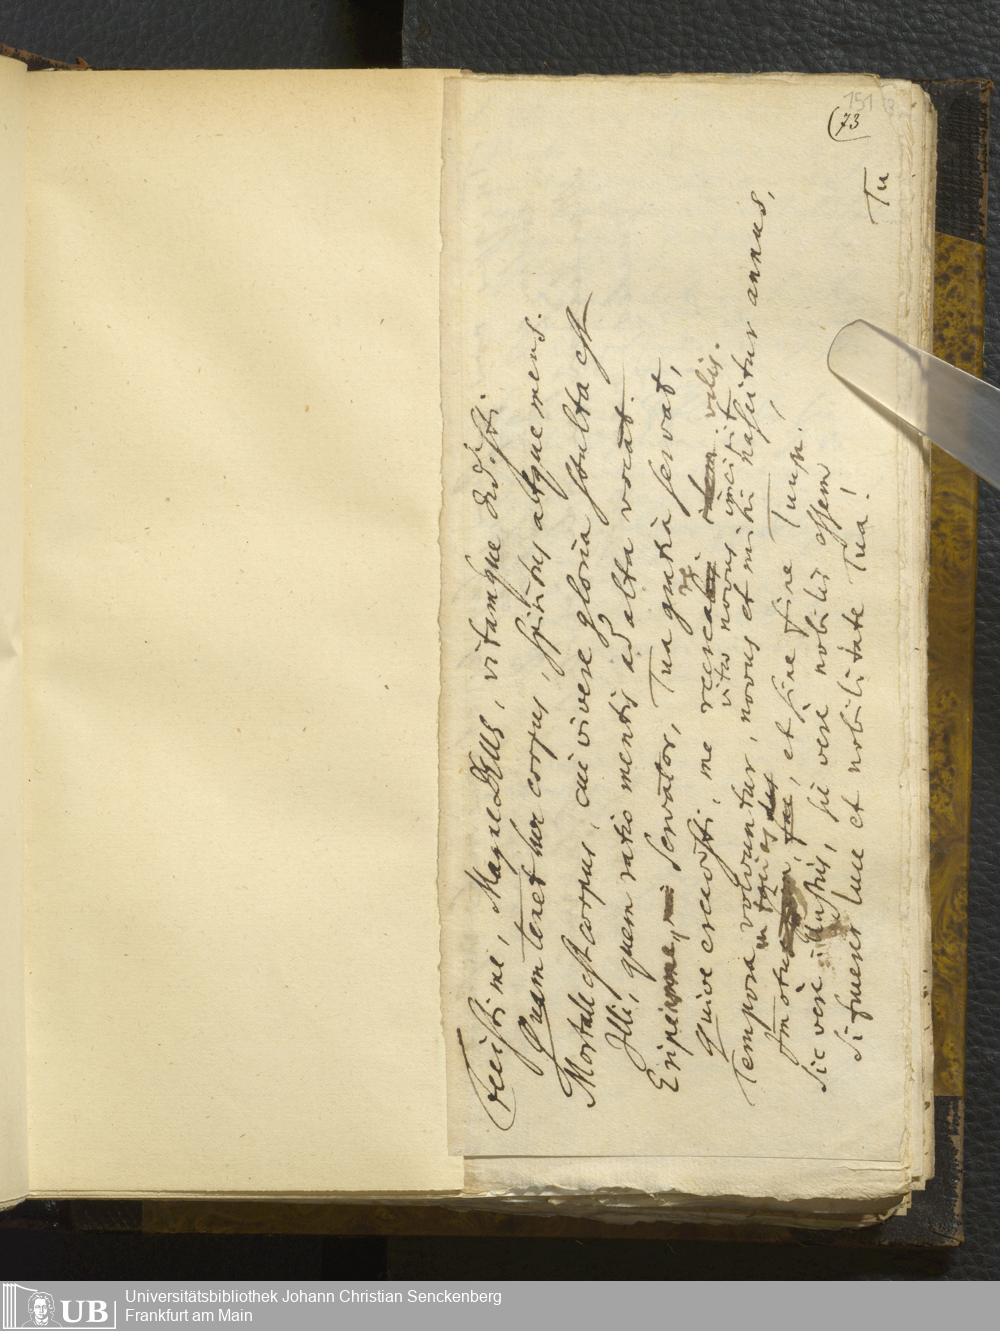 151
(73
Fecisti me, Magne DEUS, vitamque dedisti
Quam tenet hoc corpus, spiritus atque mens.
Mortale est corpus, cui vivere gloria stulta est
Illi, quem ratio mentis ad alta vocat.
Eripe me, Servator, Tua gratia servat,
quive creasti, me recrea velis.
vitæ novus incidit
Tempora volvuntur, novus et mihi nascitur annus,
in
Immotus, et sine fine Tuus.
Sic vere justus, sic vere nobilis essem
Si fruerer luce et nobilitate Tua!
Tu
UB
Universitätsbibliothek Johann Christian Senckenberg
Frankfurt am Main